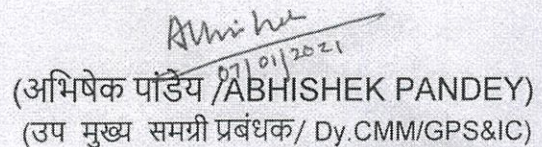 Abhishe
07/01/2021
(अभिषेक पांडेय /ABHISHEK PANDEY)
(उप मुख्य समग्री प्रबंधक/ Dy.CMM/GPS&IC)